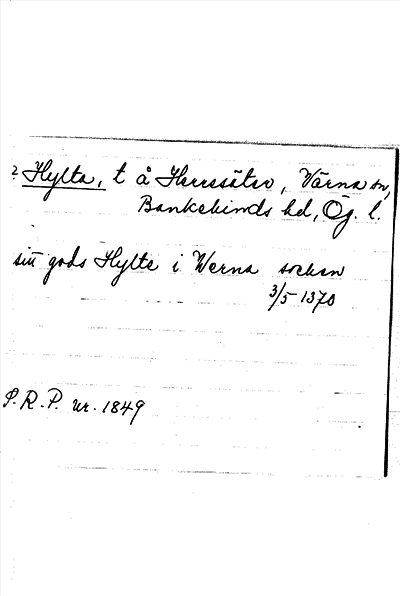 ? Hylta, t å Herresäter, Värna sn,
Bankekinds hd, Ög. l.
sitt gods Hylte i Werna socken
3/5 1370
S. R. P. nr. 1849